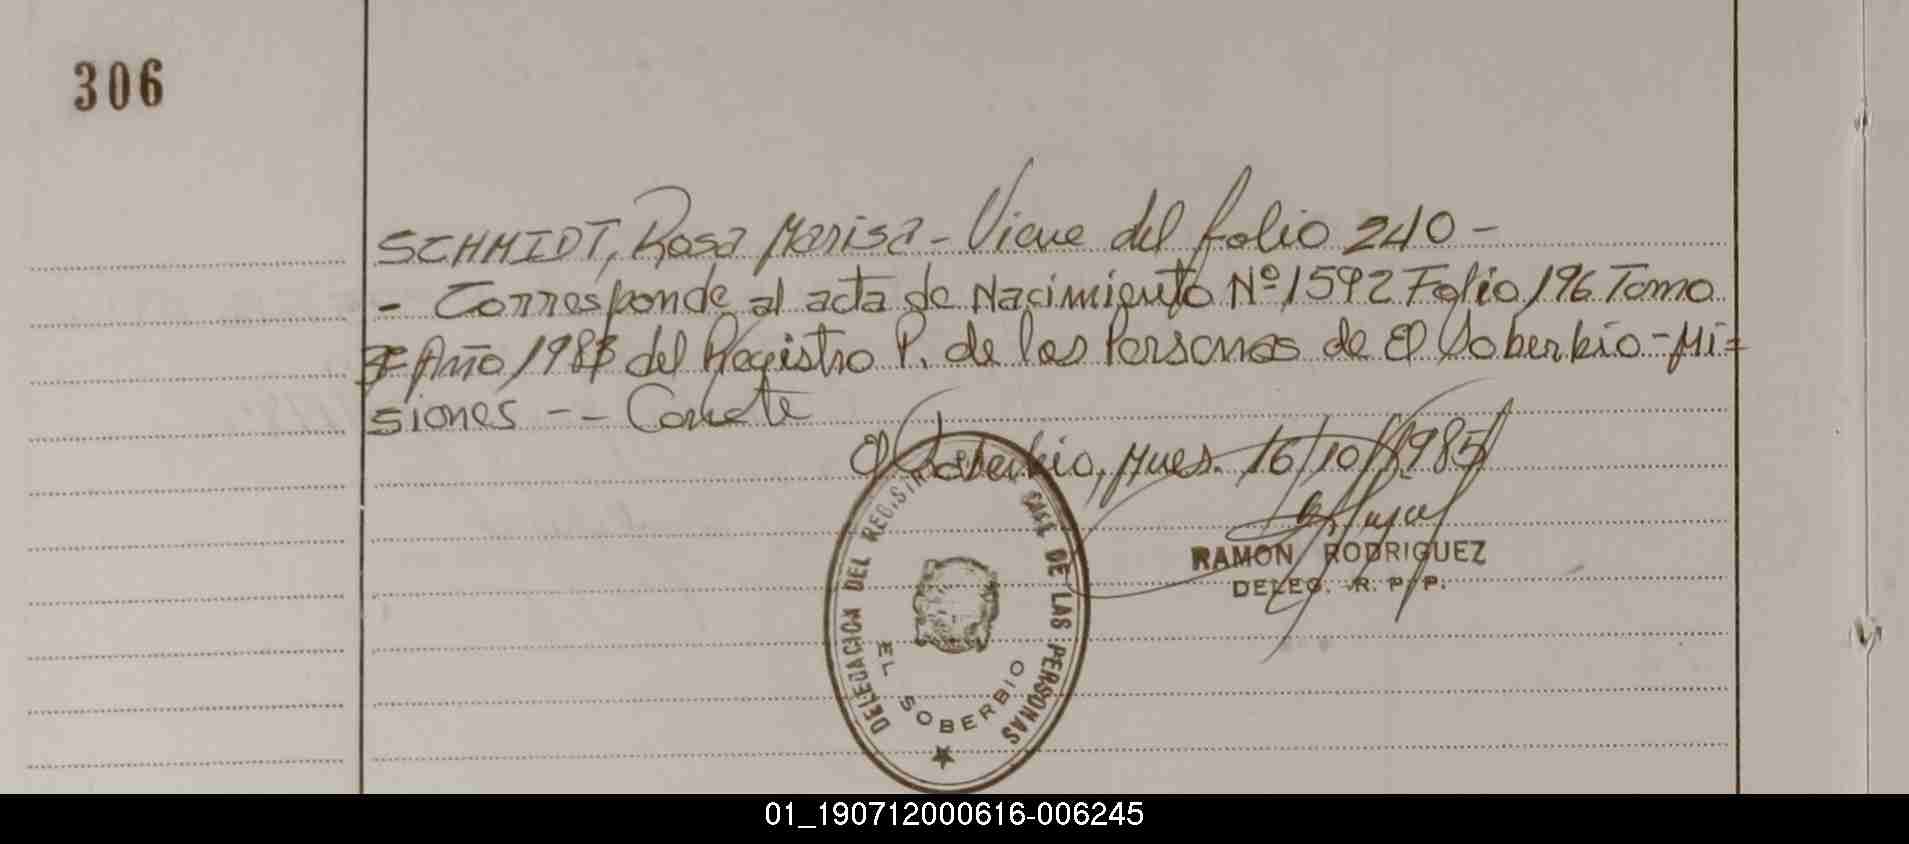 306
SCHMIDT, Rosa Marisa - Viene del folio 240 -
- Corresponde al acta de Nacimiento Nº 1592 Folio 196 Tomo
Año 1983 del Registro P. de las Personas de El Soberbio - Mi=
siones -- Conste
El Soberbio, Mnes. 16/10/1985
RAMON RODRIGUEZ
DELEG. R. P. P.
DELEGACION DEL REGISTRO DE LAS PERSONAS
EL SOBERBIO
01_190712000616-006245